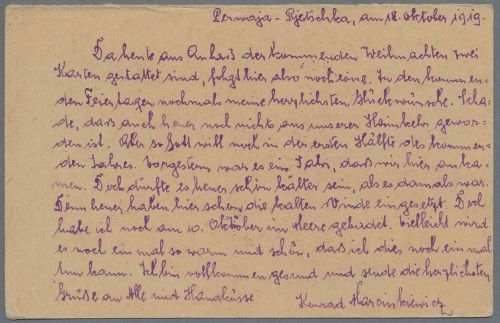 Perwaja-Rjetschka, am 18. Oktober 1919.
Da heute aus Anlaß der kommenden Weihnachten zwei
Karten gestattet sind, folgt hier also noch eine. Zu den kommen-
den Feiertagen nochmals meine herzlichsten Glückwünsche. Scha-
de, daß auch heuer noch nichts aus unserer Heimkehr gewor-
den ist. Aber so Gott will noch in der ersten Hälfte des kommen-
den Jahres. Vorgestern war es ein Jahr, daß wir hier anka-
men. Doch dürfte es heuer schon kälter sein, als es damals war.
Denn heuer haben hier schon die kalten Winde eingesetzt. Doch
habe ich noch am 10. Oktober im Meere gebadet. Vielleicht wird
es noch einmal so warm und schön, daß ich dies noch einmal
tun kann. Ich bin vollkommen gesund und sende die herzlichsten
Grüße an Alle und Handküsse
Konrad Marcinkiewicz